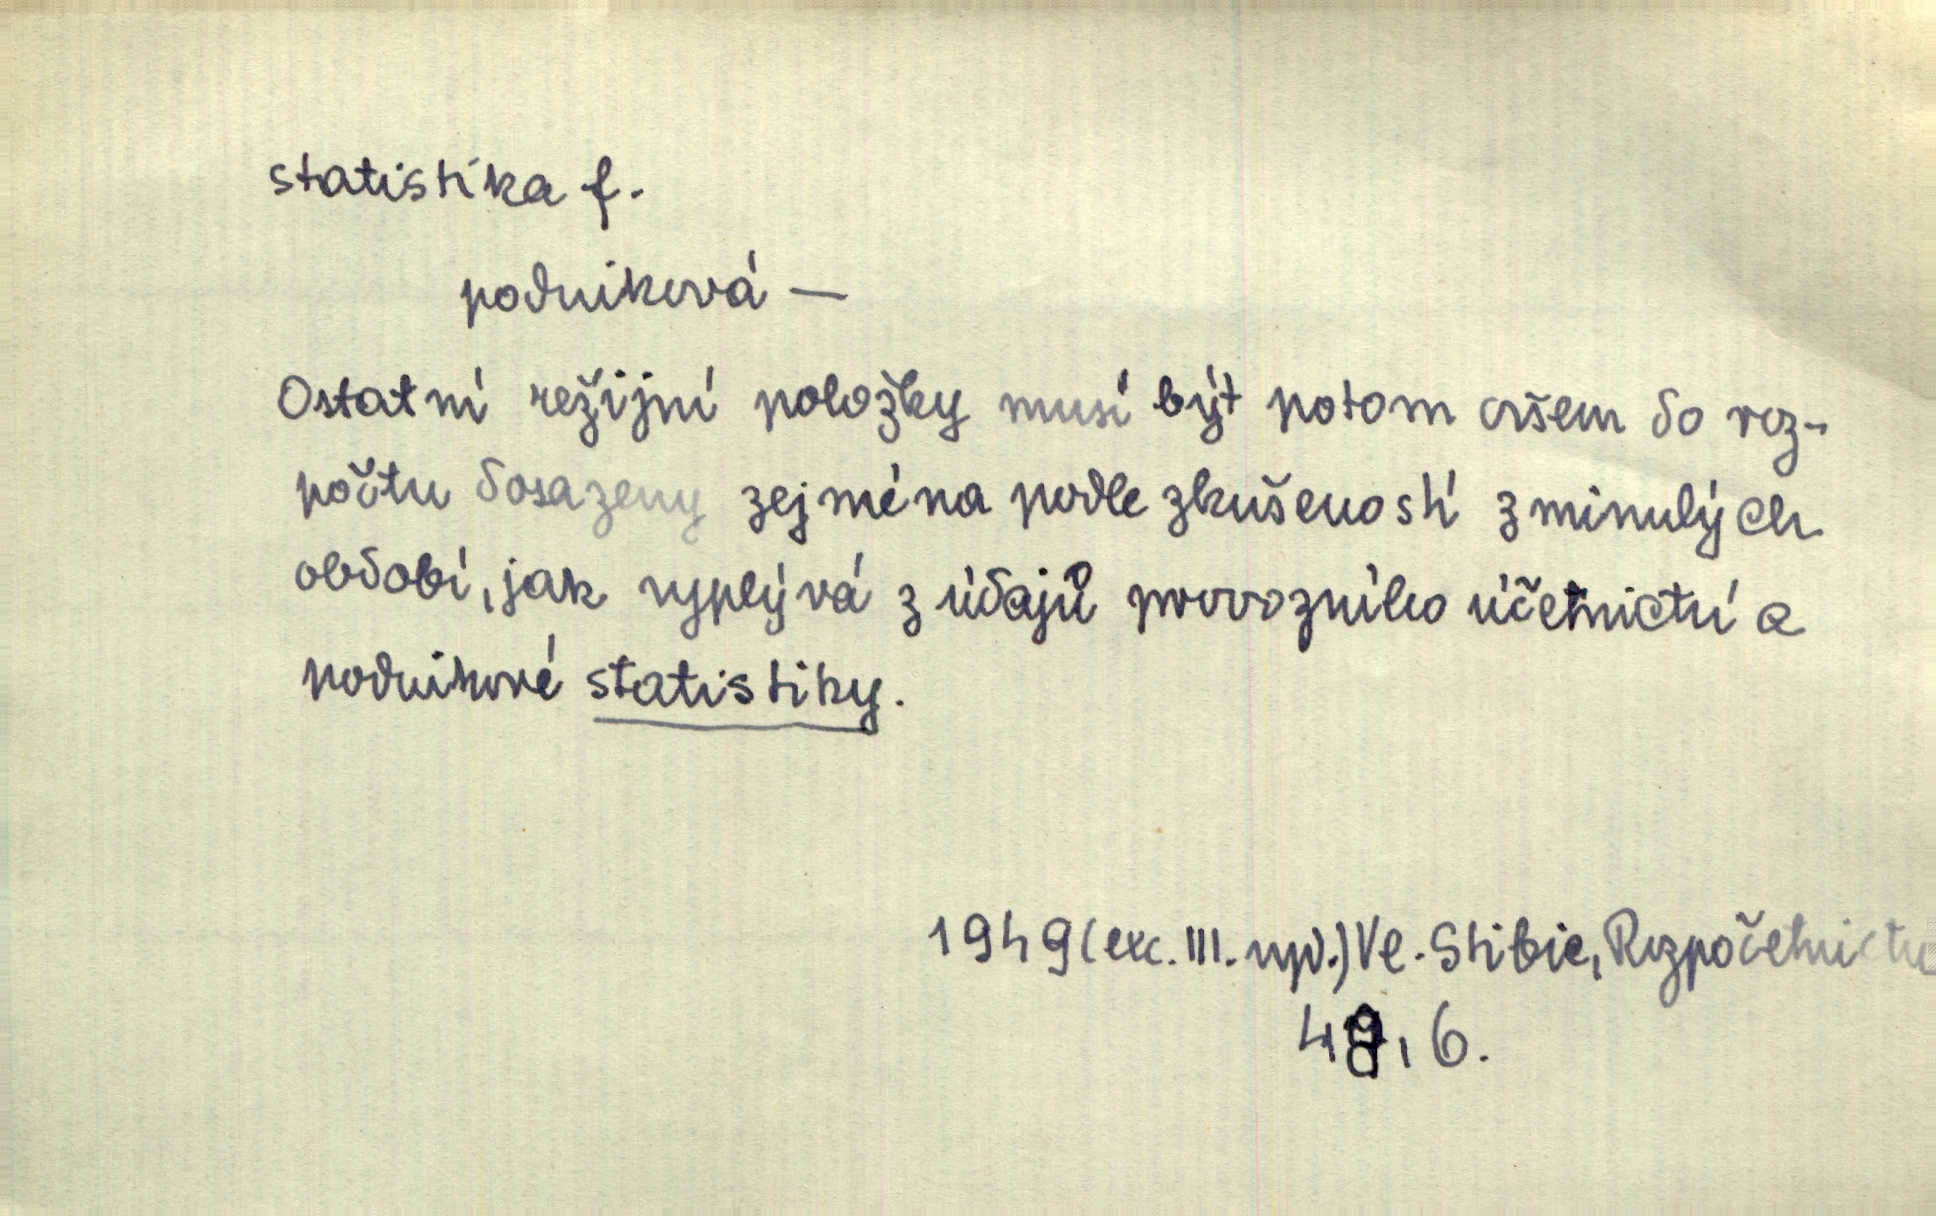 statistika f.
podniková —
Ostatní režijní položky musí být potom ovšem do roz-
počtu dosazeny zejména podle zkušeností z minulých
období, jak vyplývá z údajů provozního účetnictví a
podnikové statistiky.
1949 (exc. III. vyd.) Vl. Stibic, Rozpočetnictv
48, 6.